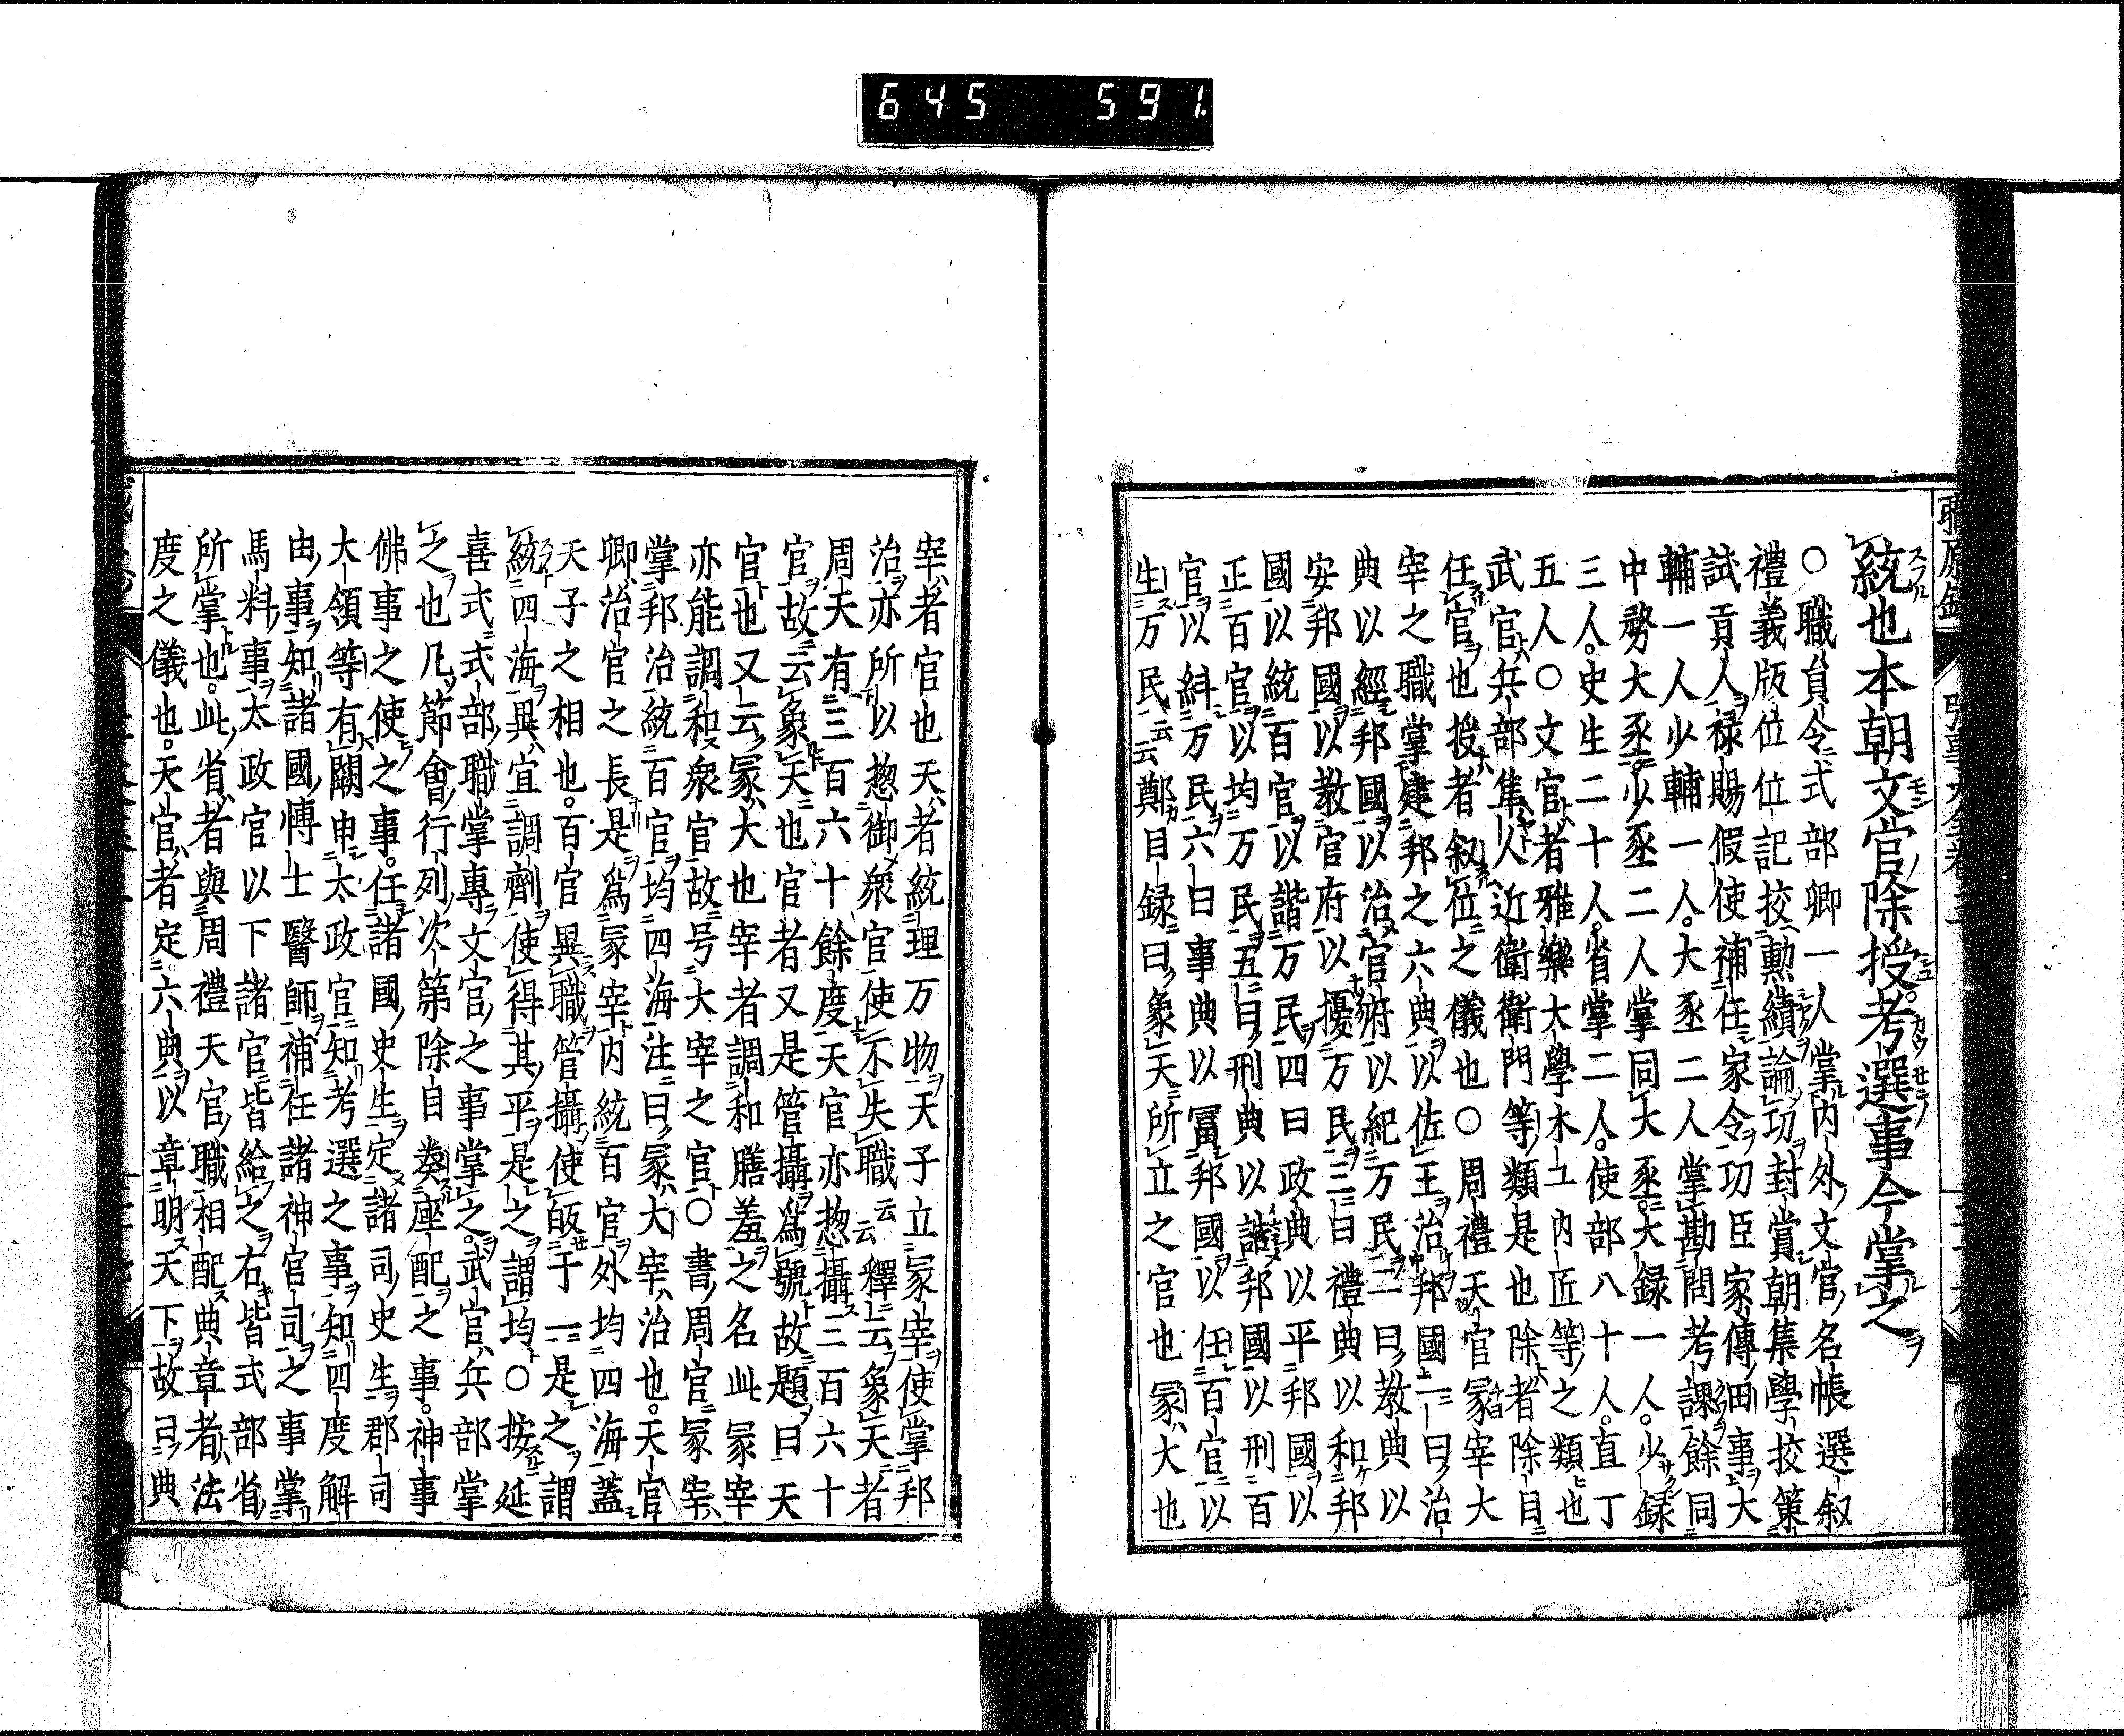 645 591
統也本朝文官除授考選事今掌之
○職員令式部卿一人掌内外文官名帳選叙
禮義版位位記挍勲績論功封賞朝集學挍策
試貢人禄賜假使補任家令功臣家傳田事大
輔一人少輔一人大丞二人掌勘問考課餘同
中務大丞少丞二人掌同大丞大録一人少録
三人史生二十人省掌二人使部八十人直丁
五人○文官者雅樂大學木工内匠等之類也
武官兵部隼人近衛衛門等類是也除者除目
任官也授者叙位之儀也○周禮天官冢宰大
宰之職掌建邦之六典以佐王治邦國一曰治
典以經邦國以治官府以紀万民二曰教典以
安邦國以教官府以擾万民三曰禮典以和邦
國以統百官以諧万民四曰政典以平邦國以
正百官以均万民五曰刑典以詰邦國以刑百
官以糾万民六曰事典以冨邦國以任百官以
生万民云云鄭目録曰象天所立之官也冢大也
宰者官也天者統理万物天子立冢宰使掌邦
治亦所以惣御衆官使不失職云云釋云象天者
周天有三百六十餘度天官亦惣攝三百六十
官故云象天也官者又是管攝爲號故題曰天
官也又云冢大也宰者調和膳羞之名此冢宰
亦能調和衆官故号大宰之官○書周官冢宰
掌邦治統百官均四海注曰冢大宰治也天官
卿治官之長是爲冢宰内統百官外均四海蓋
天子之相也百官異職管攝使皈于一是之謂
統四海異宜調劑使得其平是之謂均○按延
喜式式部職掌專文官之事掌之武官兵部掌
之也凡節會行列次第除自奏座配之事神事
佛事之使之事任諸國史生定諸司史生郡司
大領等有關申太政官知考選之事知四度解
由事知諸國博士醫師補任諸神官司之事掌
馬料事太政官以下諸官皆給之右皆式部省
所掌也此省者與周禮天官職相配典章者法
度之儀也天官者定六典以章明天下故曰典